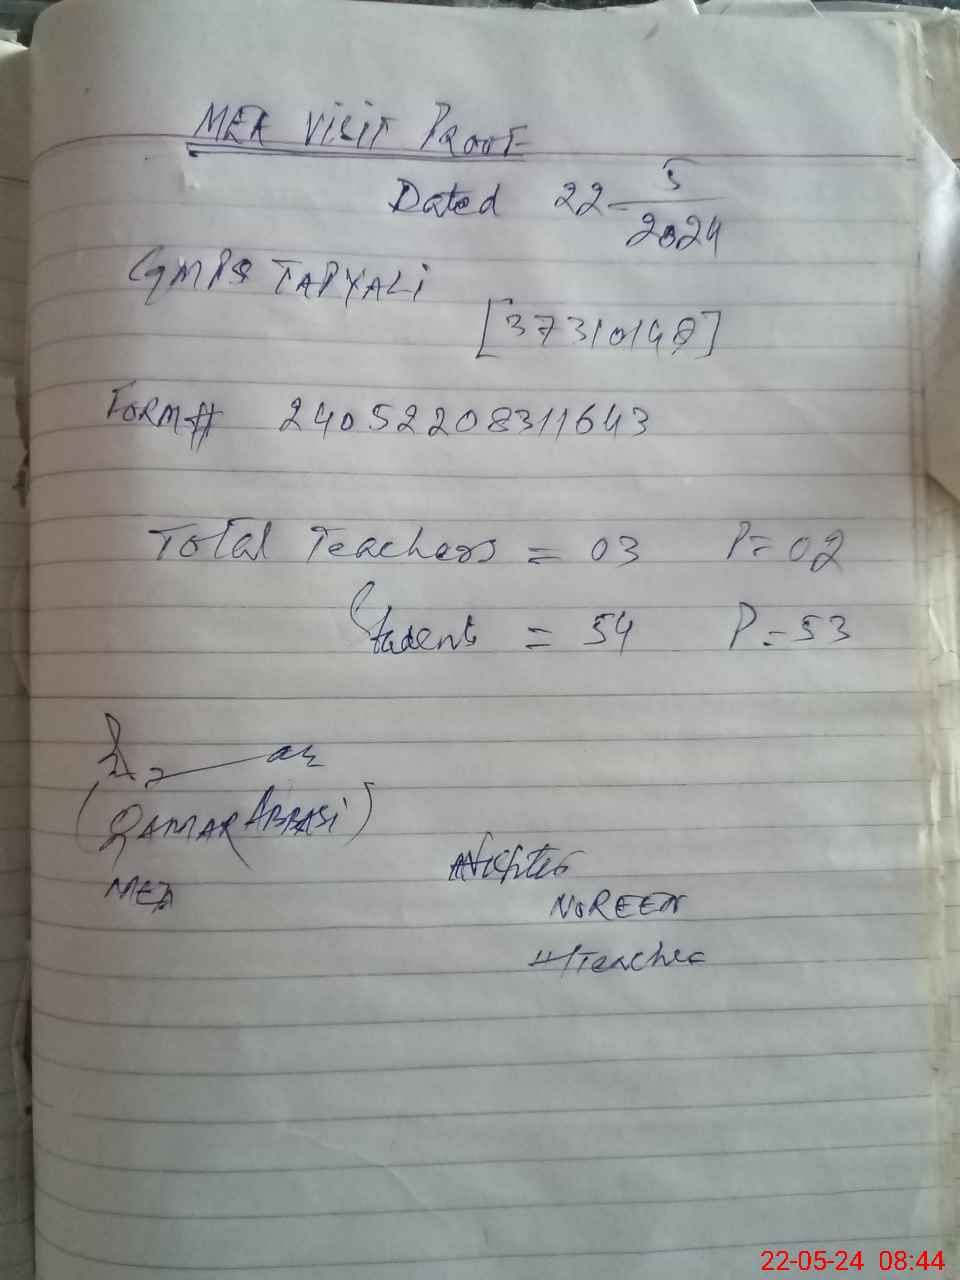 MEA VISIT PROOF
Dated 22-5/2024
GMPS TAPYALI
[37310148]
FORM# 240522083111643
Total Teachers = 03 P=02
Student = 54 P=53
(QAMAR ABBASI)
MEA
NOREEN
H/Teacher
22-05-24 08:44